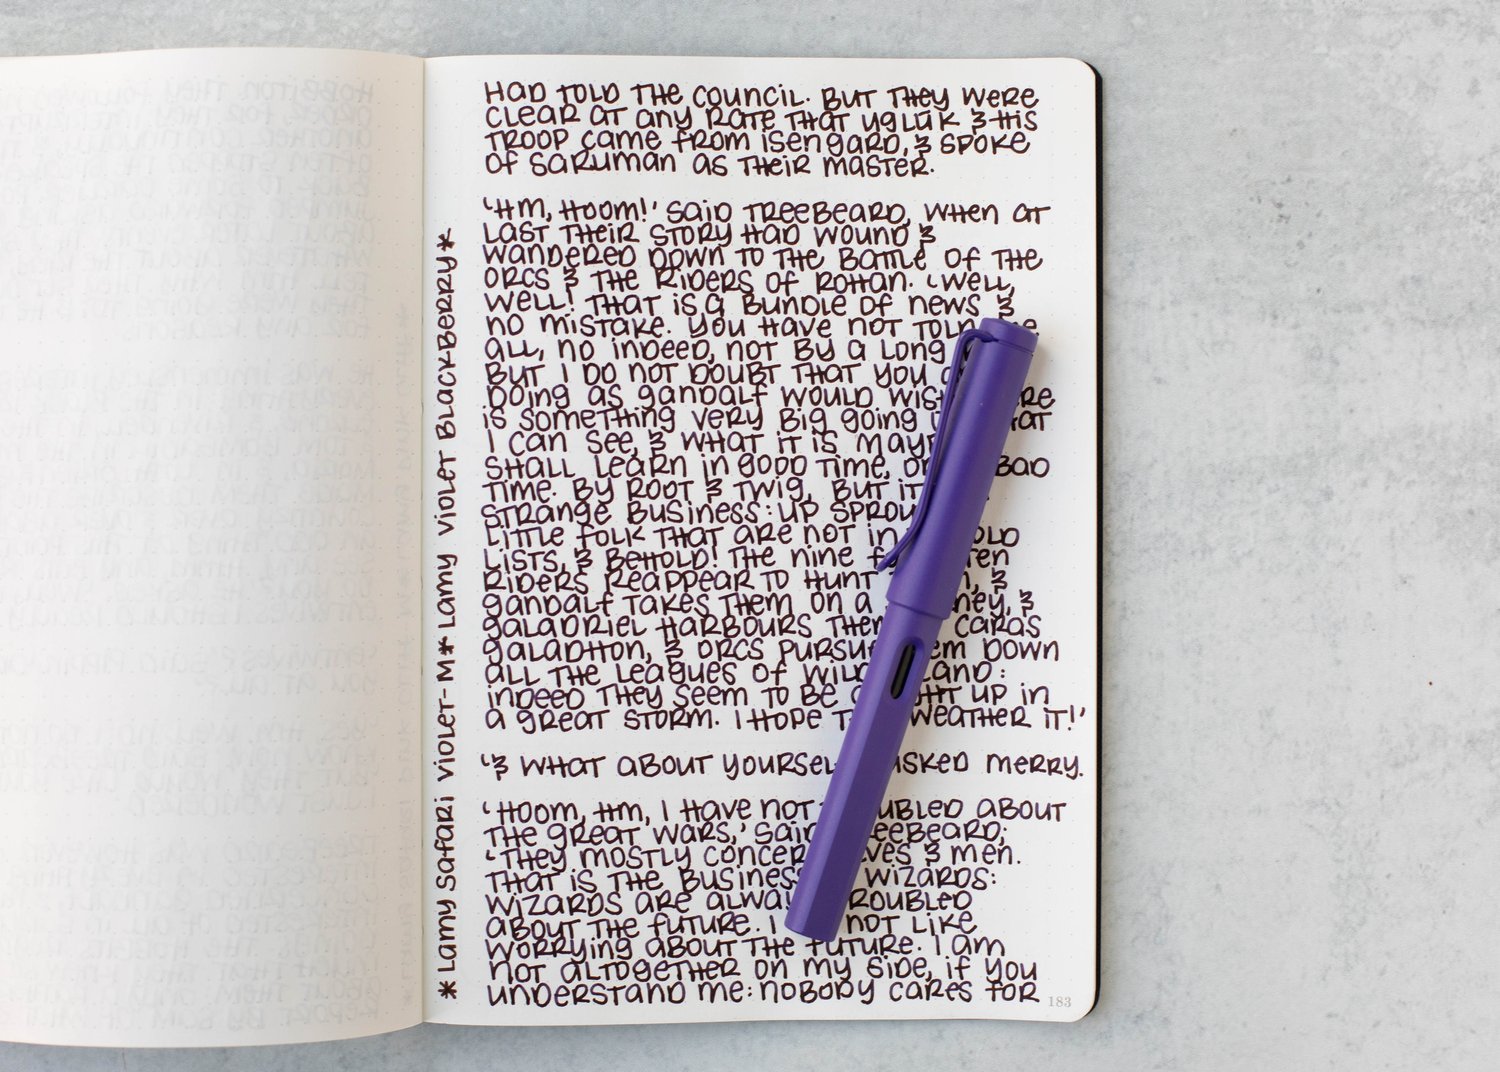 HAD TOLD THE COUNCIL. BUT THEY WERE
CLEAR AT ANY RATE THAT UGLÚK & HIS
TROOP CAME FROM ISENGARD, & SPOKE
OF SARUMAN AS THEIR MASTER.
'HM, HOOM!' SAID TREEBEARD, WHEN AT
LAST THEIR STORY HAD WOUND &
WANDERED DOWN TO THE BATTLE OF THE
ORCS & THE RIDERS OF ROHAN. 'WELL,
WELL! THAT IS A BUNDLE OF NEWS &
NO MISTAKE. YOU HAVE NOT TOLD
ALL, NO INDEED, NOT BY A LONG
BUT I DO NOT DOUBT THAT YOU
DOING AS GANDALF WOULD
IS SOMETHING VERY BIG GOING
I CAN SEE, & WHAT IT IS
SHALL LEARN IN GOOD TIME, BAD
TIME. BY ROOT & TWIG, BUT IT
STRANGE BUSINESS: UP
LITTLE FOLK THAT ARE NOT IN OLD
LISTS, & BEHOLD! THE NINE
RIDERS REAPPEAR TO HUNT &
GANDALF TAKES THEM ON A &
GALADRIEL HARBOURS CARAS
GALADHON, & ORCS DOWN
ALL THE LEAGUES OF
INDEED THEY SEEM TO BE UP IN
A GREAT STORM. I HOPE WEATHER IT!'
'& WHAT ABOUT ASKED MERRY.
'HOOM, HM, I HAVE NOT ABOUT
THE GREAT WARS,' SAID TREEBEARD;
'THEY MOSTLY & MEN.
THAT IS THE BUSINESS WIZARDS:
WIZARDS ARE TROUBLED
ABOUT THE FUTURE. I NOT LIKE
WORRYING ABOUT THE FUTURE. I AM
NOT ALTOGETHER ON MY SIDE, IF YOU
UNDERSTAND ME: NOBODY CARES FOR
183
*LAMY SAFARI VIOLET-M* LAMY VIOLET BLACKBERRY*